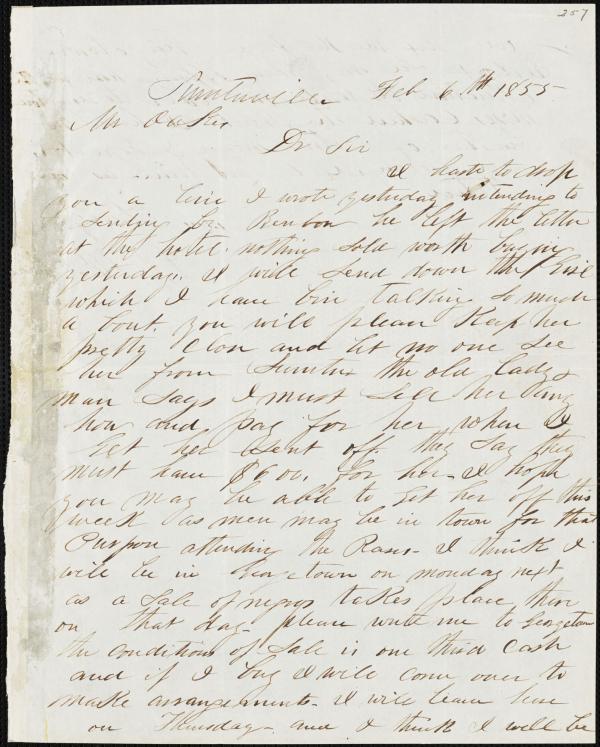 257
Sumterville Feb 6th 1855
Mr Oakes
Dr Sir
I haste to drop
you a line I wrote yesterday intending to
Sending by he left the letter
at the hotel. nothing Sold worth buying
yesterday. I will Send down the Girl
which I have bin talking So much
a bout. you will pleas Keep her
pretty Close and let no one See
her from Sumter the old lady
man Says I must Sell her any
how and pay for her when I
Get her Sent off. they Say they
must have $600. for her. I hope
you may be able to Get her off this
week as men may be in town for that
Purpose attending the Races. I think I
will be in Georgetown on monday next
as a Sale of negros takes place there
on that day. please write me to Georgetown
the conditions of Sale is one third Cash
and if I buy I will come over to
make arrangements. I will leave here
on Thursday. and I think I will be